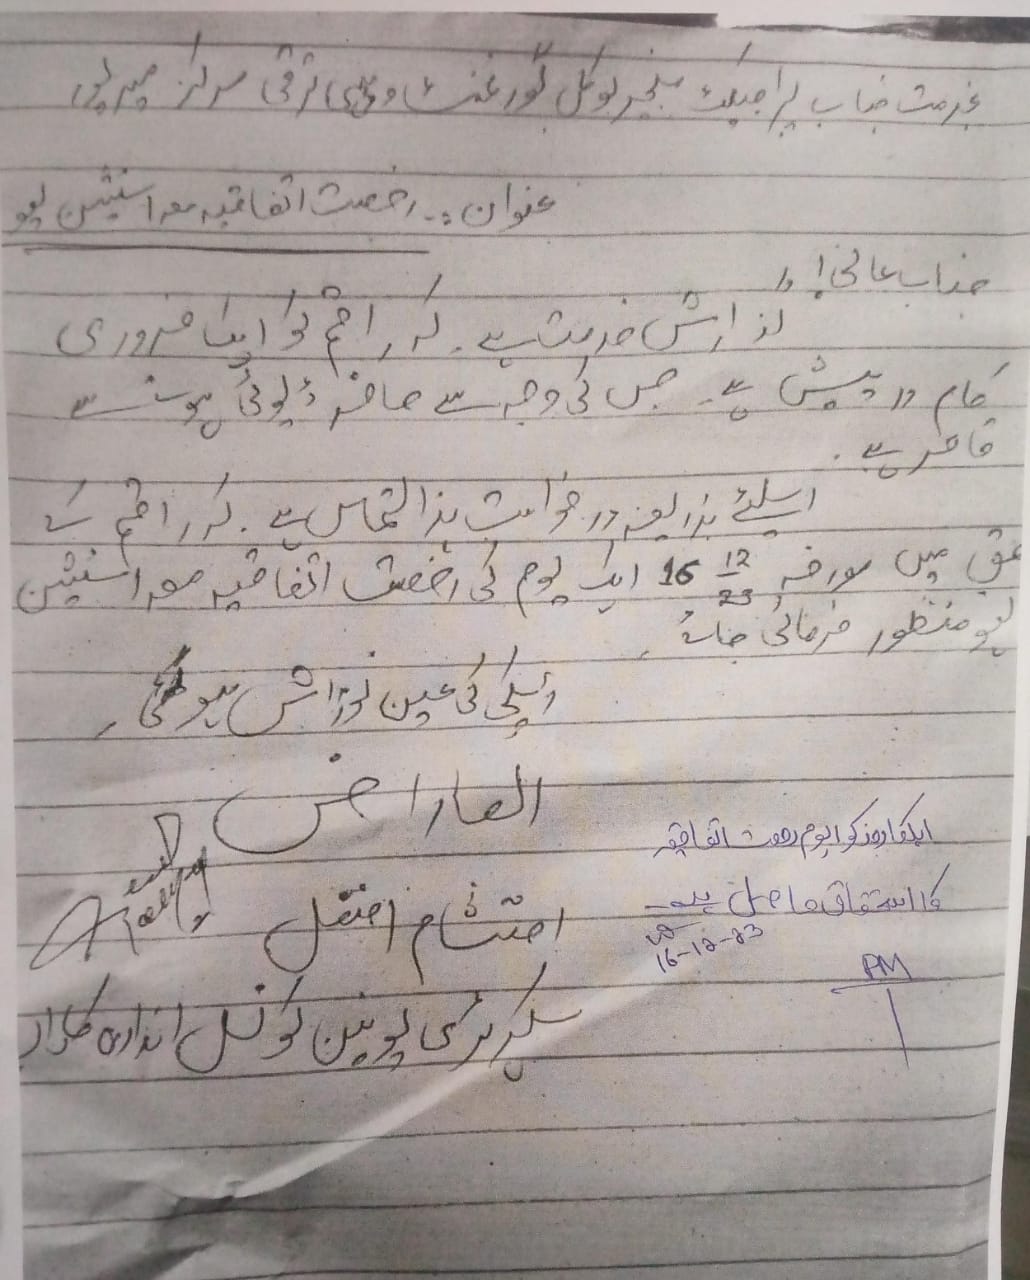 بخدمت جناب پراجیکٹ منیجر لوکل گورنمنٹ و دیہی ترقی مرکز میرپور
عنوان:۔ رخصت اتفاقیہ معہ اسٹیشن لیو
جناب عالی!
گذارش خدمت ہے۔ کہ راقم کو ایک ضروری
کام درپیش ہے۔ جس کی وجہ سے حاضر ڈیوٹی ہونے سے
قاصر ہے۔
اسلئے بذریعہ درخواست ہذا التماس ہے۔ کہ راقم کے
حق میں مورخہ 16 12/23 ایک یوم کی رخصت اتفاقیہ معہ اسٹیشن
لیو منظور فرمائی جائے۔
آپکی عین نوازش ہوگی۔
العارض
احتشام افضل
سیکرٹری یونین کونسل
اہلکار مذکور ایوم رخصت اتفاقیہ
کا استحقاق حاصل ہے۔
16-12-23
PM